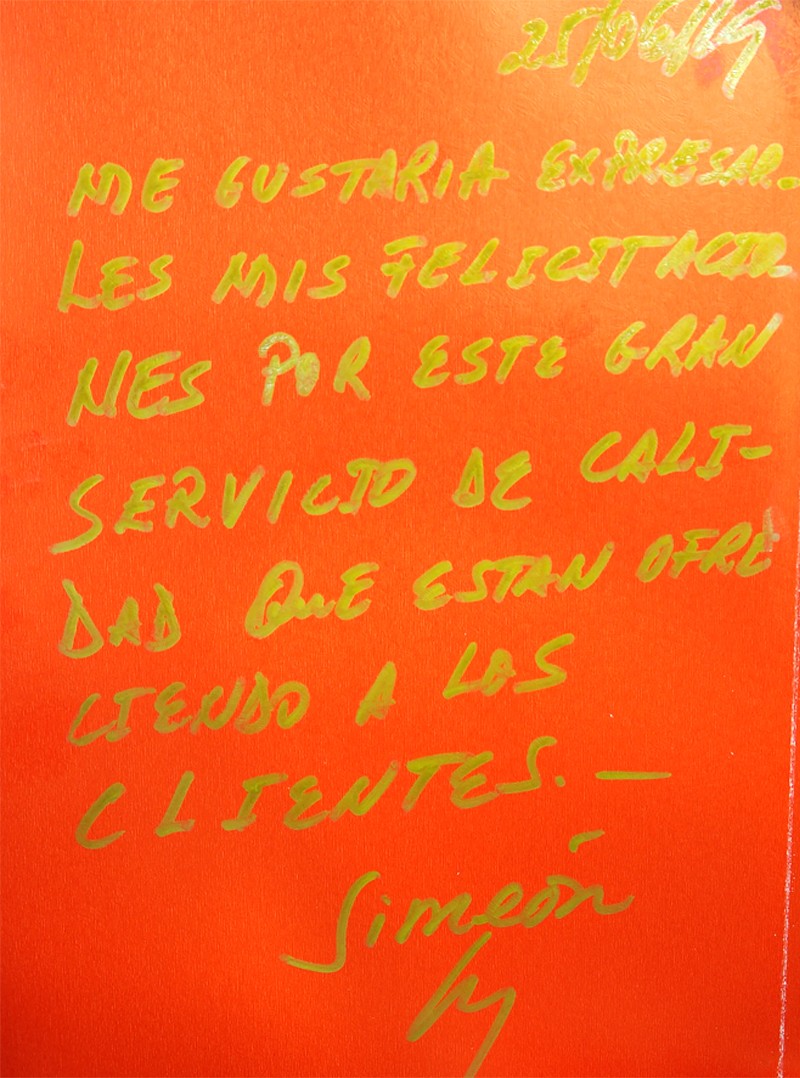 25/06/19
ME GUSTARIA EXPRESAR-
LES MIS FELICITACIO
NES POR ESTE GRAN
SERVICIO DE CALI-
DAD QUE ESTAN OFRE
CIENDO A LOS
CLIENTES. —
Simeón